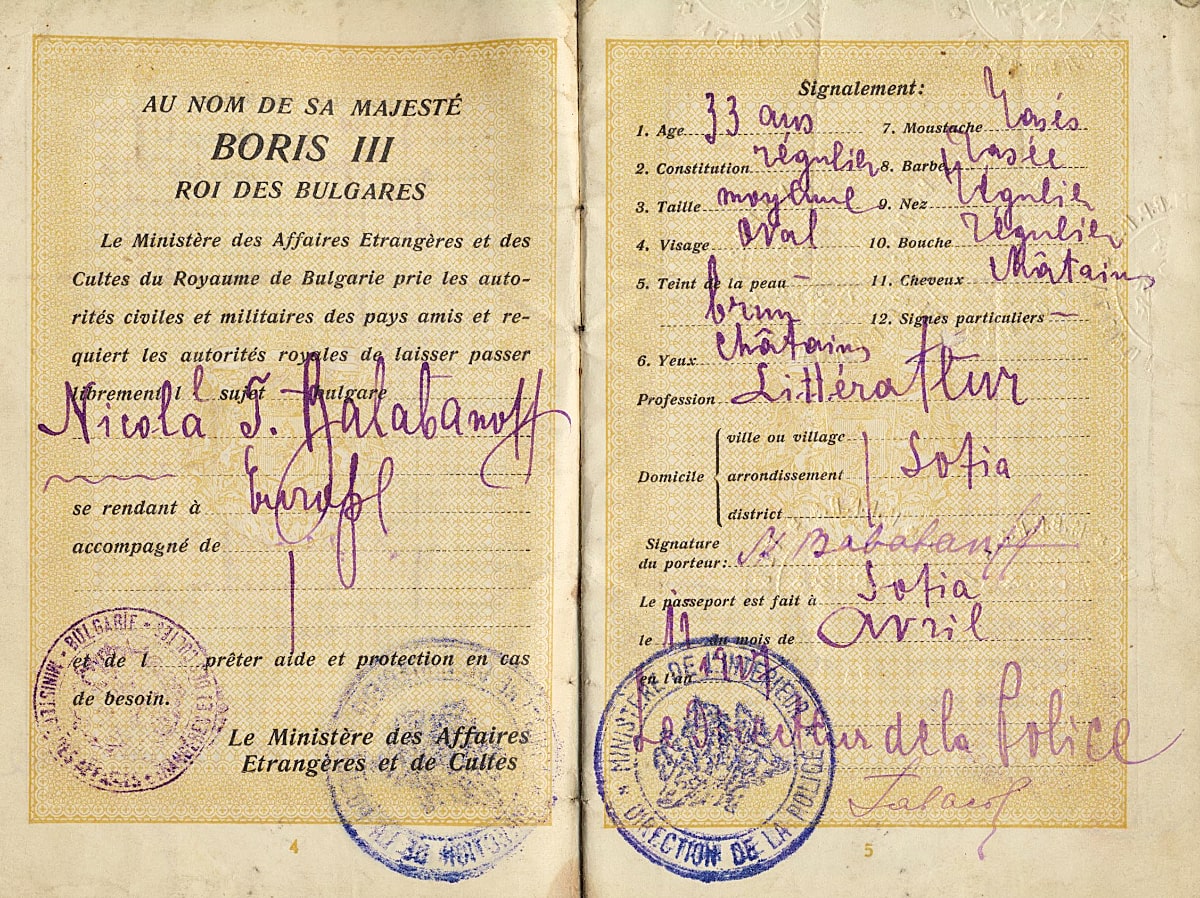 AU NOM DE SA MAJESTÉ
BORIS III
ROI DES BULGARES
Le Ministère des Affaires Etrangères et des
Cultes du Royaume de Bulgarie prie les auto-
rités civiles et militaires des pays amis et re-
quiert les autorités royales de laisser passer
librement l sujet bulgare
Nicola T. Balabanoff
se rendant à Europe
accompagné de
et de l prêter aide et protection en cas
de besoin.
Le Ministère des Affaires
Etrangères et de Cultes
4
Signalement:
1. Age 33 ans
2. Constitution régulier
3. Taille moyenne
4. Visage oval
5. Teint de la peau
brun
6. Yeux châtains
7. Moustache rasés
8. Barbe rasée
9. Nez régulier
10. Bouche régulier
11. Cheveux châtains
12. Signes particuliers —
Profession Littérateur
Domicile
ville ou village
arrondissement Sofia
district
Signature
du porteur: Balabanoff
Le passeport est fait à Sofia
le 11 du mois de Avril
en l'an
Le Directeur de la Police
MINISTÈRE DE L'INTERIEUR
DIRECTION DE LA POLICE
BULGARIE
5